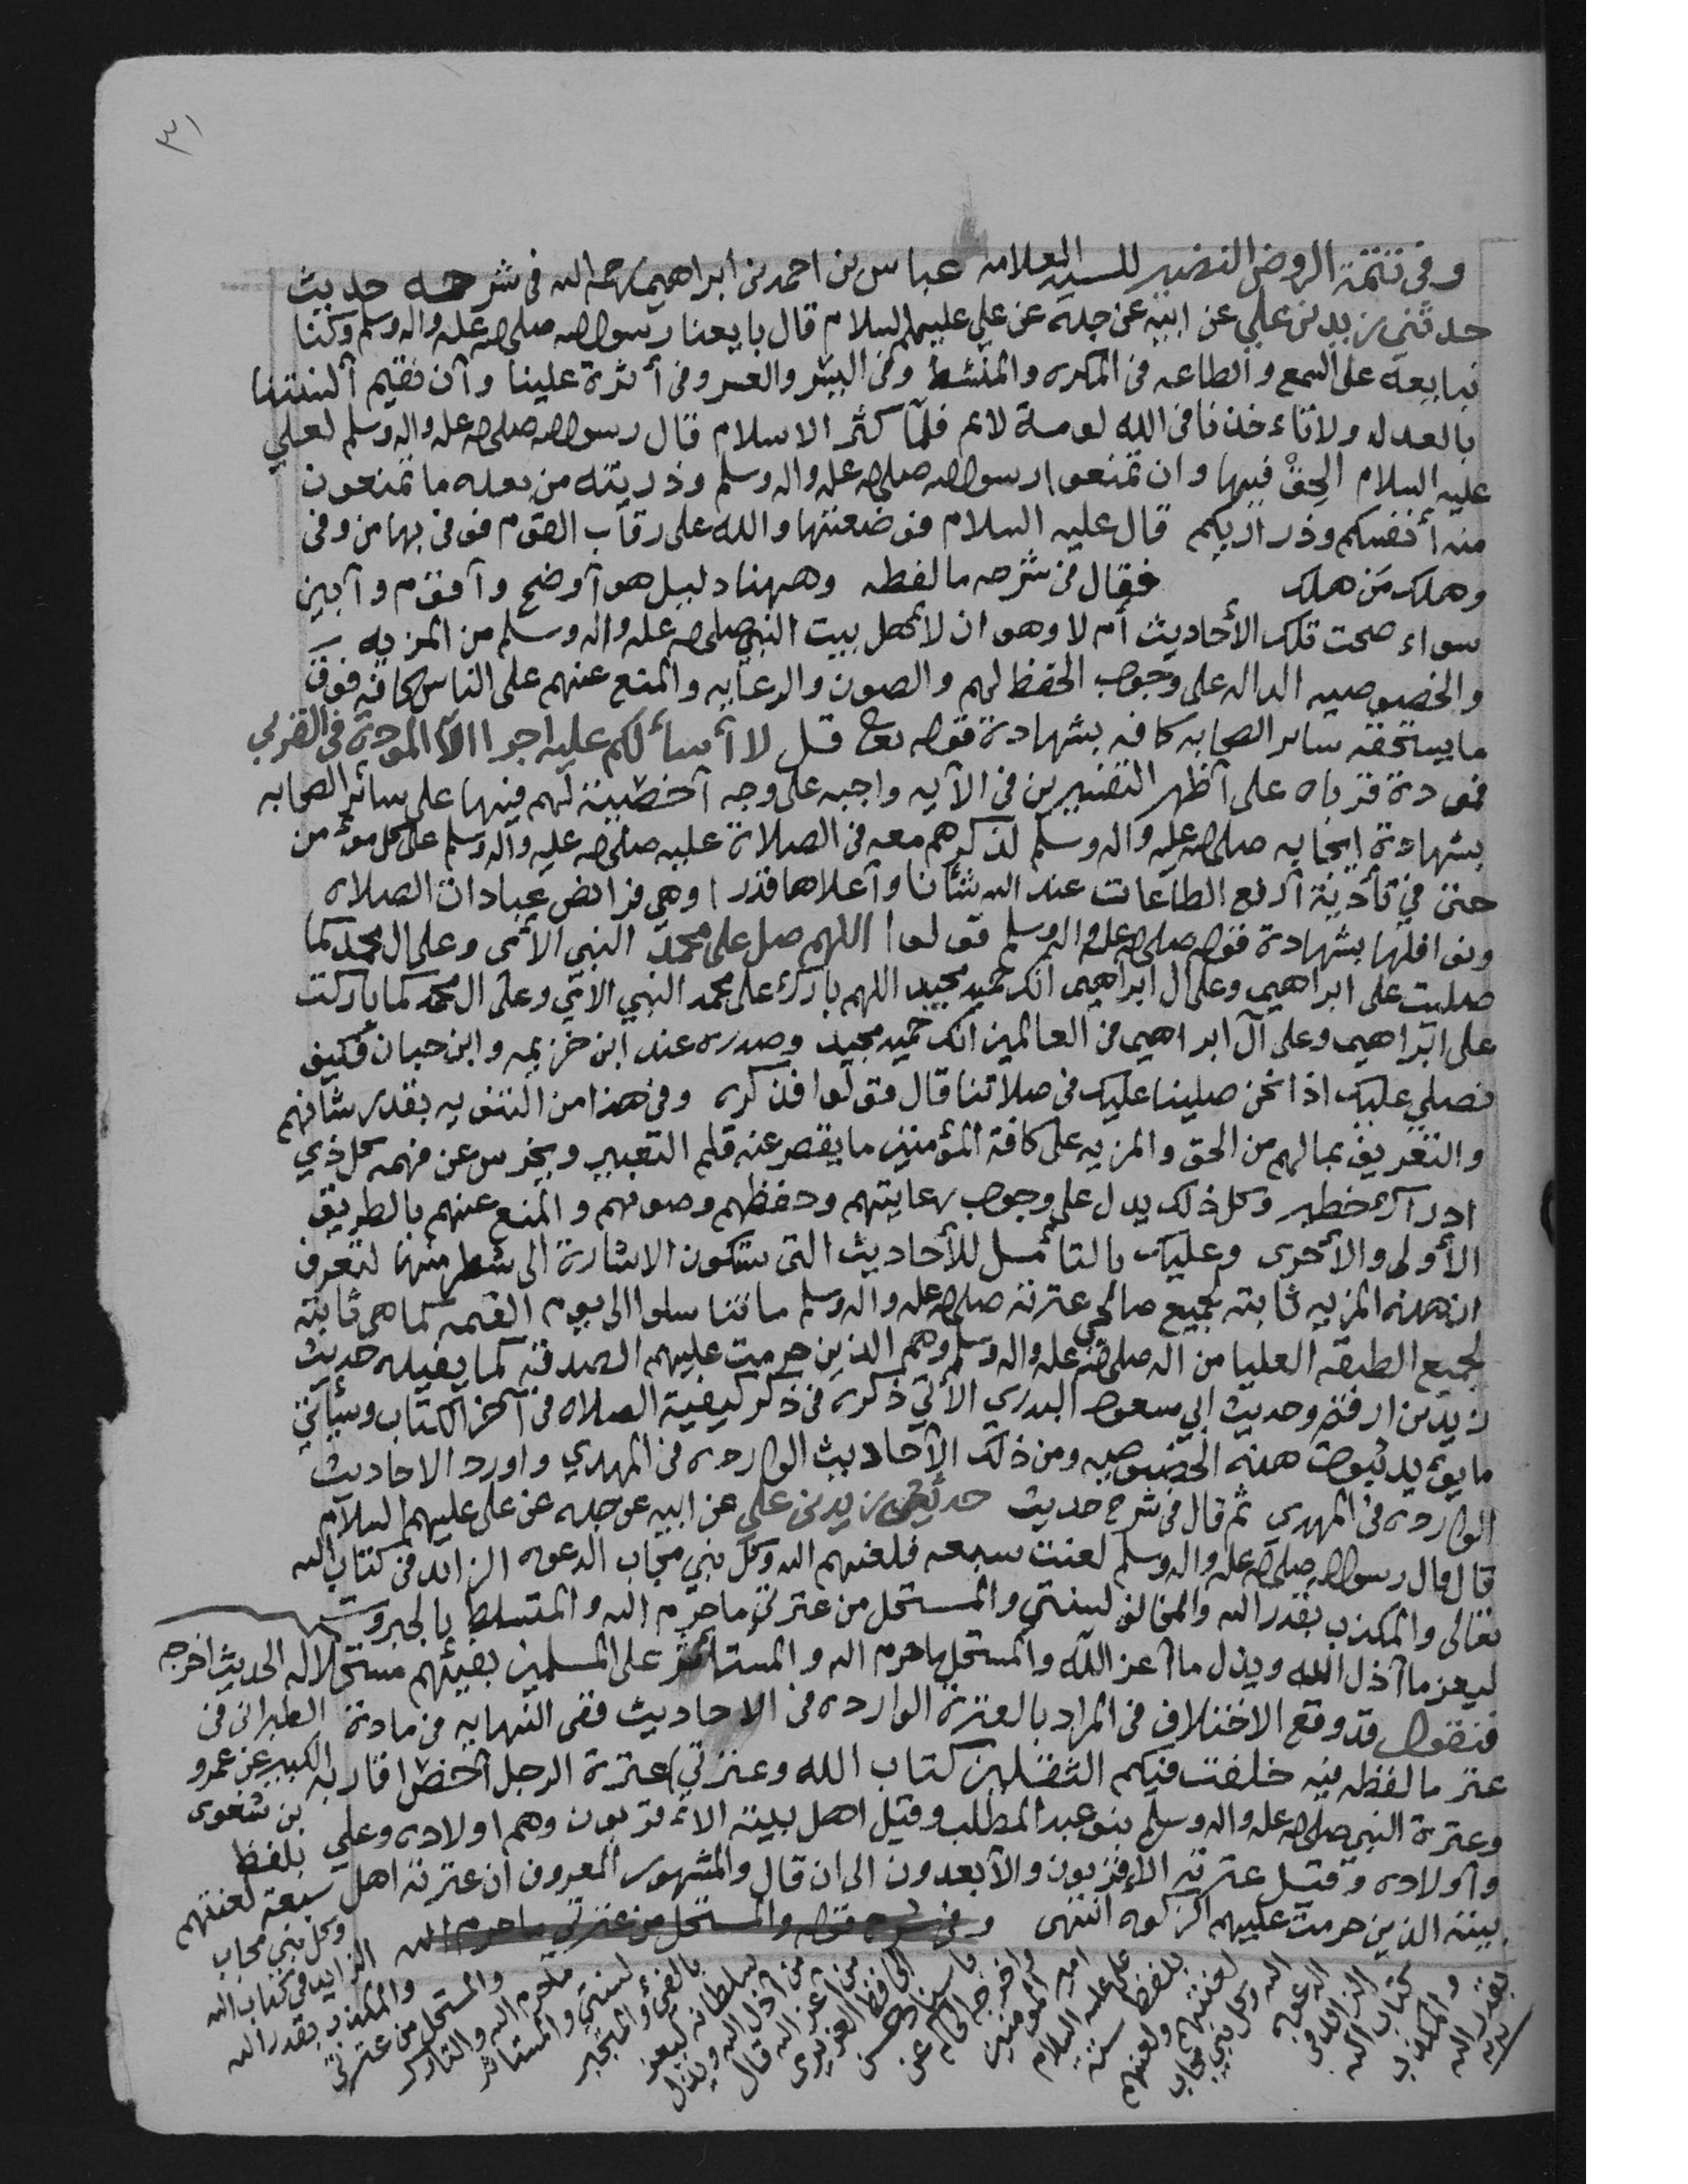 ٣١
وفي تتمة الروض النضير للسيد العلامه عباس بن احمد بن ابراهيم رحمه الله في شرحه حديث
حدثني زيد بن علي عن ابيه عن جده عن علي عليهم السلام قال بايعنا رسول الله صلى الله عليه واله وسلم وكنا
نبايعه على السمع والطاعه في المكره والمنشط وفي اليسر والعسر وفي أثرة علينا وأن نقيم ألسنتنا
بالعدل ولا تاءخذنا في الله لومة لائم فلمّا كثر الاسلام قال رسول الله صلى الله عليه واله وسلم لعلي
عليه السلام الحِقْ فيها وان تمنعوا رسول الله صلى الله عليه واله وسلم وذريته من بعده ما تمنعون
منه أنفسكم وذراريكم قال عليه السلام فوضعتها والله على رقاب القوم فوفى بها من وفى
وهلك مَن هلك فقال في شرحه ما لفظه وههنا دليل هو أوضح وأقوم وأبين
سواء صحت تلك الأحاديث أم لا وهو ان لأهل بيت النبي صلى الله عليه واله وسلم من المزيه
والخصوصيه الداله على وجوب الحفظ لهم والصون والرعايه والمنع عنهم على الناس كافه فوق
ما يستحقه سائر الصحابه كافه بشهادة قوله تعالى قل لا أسألكم عليه اجرا الاّ المودة في القربى
فمودة قرباه على أظهر التفسيرين في الآيه واجبه على وجه أخصيّة لهم فيها على سائر الصحابه
بشهادة ايجابه صلى الله عليه واله وسلم لذكرهم معه في الصلاة عليه صلى الله عليه وآله وسلم على كل موءمن
حتى في تأدية أرفع الطاعات عند الله شأنا وأعلاها قدرا وهي فرائض عبادات الصلاه
ونوافلها بشهادة قوله صلى الله عليه واله وسلم قولوا اللهم صل على محمد النبي الأمي وعلى ال محمد كما
صليت على ابراهيم وعلى ال ابراهيم انك حميد مجيد اللهم بارك على محمد النبي الأمي وعلى ال محمد كما باركت
على ابراهيم وعلى آل ابراهيم في العالمين انك حميد مجيد وصدره عند ابن خزيمه وابن حبان فكيف
نصلي عليك اذا نحن صلينا عليك في صلاتنا قال قولوا فذكره وفي هذا من التنويه بقدر شانهم
والتعريف بمالهم من الحق والمزيه على كافة المؤمنين ما يقصر عنه قلم التعبير ويخرس عن فهمه كل ذي
ادراك خطير وكل ذلك يدل على وجوب رعايتهم وحفظهم وصونهم والمنع عنهم بالطريق
الأولى والأحرى وعليك بالتأمل للأحاديث التي ستكون الاشارة الى شطر منها لتعرف
ان هذه المزيه ثابته لجميع صالحي عترته صلى الله عليه واله وسلم ما تناسلوا الى يوم القيمه كما هي ثابته
لجميع الطبقه العليا من اله صلى الله عليه واله وسلم وهم الذين حرمت عليهم الصدقه كما يفيده حديث
زيد بن ارقم وحديث ابي مسعود البدري الأتي ذكره في ذكر كيفية الصلاه في آخر الكتاب وسيأتي
ما يؤيد ثبوت هذه الخصوصيه ومن ذلك الأحاديث الوارده في المهدي واورد الاحاديث
الوارده في المهدي ثم قال في شرح حديث حدثني زيد بن علي عن ابيه عن جده عن علي عليهم السلام
قال قال رسول الله صلى الله عليه واله وسلم لعنت سبعه فلعنهم الله وكل نبي مجاب الدعوه الزائد في كتاب الله
تعالى والمكذب بقدر الله والمخالف لسنتي والمستحل من عترتي ما حرّم الله والمتسلط بالجبروت
ليعز ما أذل الله ويذل ما أعز الله والمستحل ما حرم الله والمستأثر على المسلمين بفيئهم مستحلا له الحديث اخرجه
فنقول قد وقع الاختلاف في المراد بالعترة الوارده في الاحاديث ففي النهايه في مادة الطبراني في
عتر ما لفظه فيه خلفت فيكم الثقلين كتاب الله وعترتي عترة الرجل أخص اقاربه الكبير عن عمرو
وعترة النبي صلى الله عليه واله وسلم بنو عبد المطلب وقيل اهل بيته الاقربون وهم اولاده وعلي بن شغوى
وأولاده وقيل عترته الأقربون والأبعدون الى ان قال والمشهور المعروف ان عترته اهل بلفظ
بيته الذين حرمت عليهم الزكوه انتهى وفي شرح قوله والمستحل من عترتي ما حرم الله سبعة لعنتهم
وكل نبي مجاب
الزايد في كتاب الله
والمكذب بقدر الله
والمستحل من عترتي
ما حرم الله والتارك
لسنتي والمستاثر
بالفيء والمتجبر
بسلطانه ليعز
من أذل الله ويذل
من أعز الله قال
الحافظ العزيزي
باسناد حسن
واخرجه الحاكم عن
امير المومنين
علي عليه السلام
بلفظ ستة
لعنتهم ولعنهم
الله وكل نبي مجاب
الدعوه
الزائد في
كتاب الله
والمكذب
بقدر الله